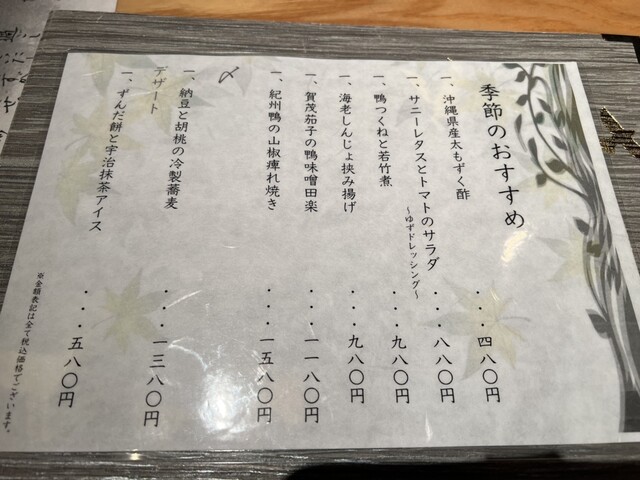 季節のおすすめ
一、沖縄県産太もずく酢 ・・・四八〇円
一、サニーレタスとトマトのサラダ ・・・八八〇円
～ゆずドレッシング～
一、鴨つくねと若竹煮 ・・・九八〇円
一、海老しんじょ挟み揚げ ・・・九八〇円
一、賀茂茄子の鴨味噌田楽 ・・・一一八〇円
一、紀州鴨の山椒痺れ焼き ・・・一五八〇円
〆
一、納豆と胡桃の冷製蕎麦 ・・・一三八〇円
デザート
一、ずんだ餅と宇治抹茶アイス ・・・五八〇円
※金額表記は全て税込価格でございます。